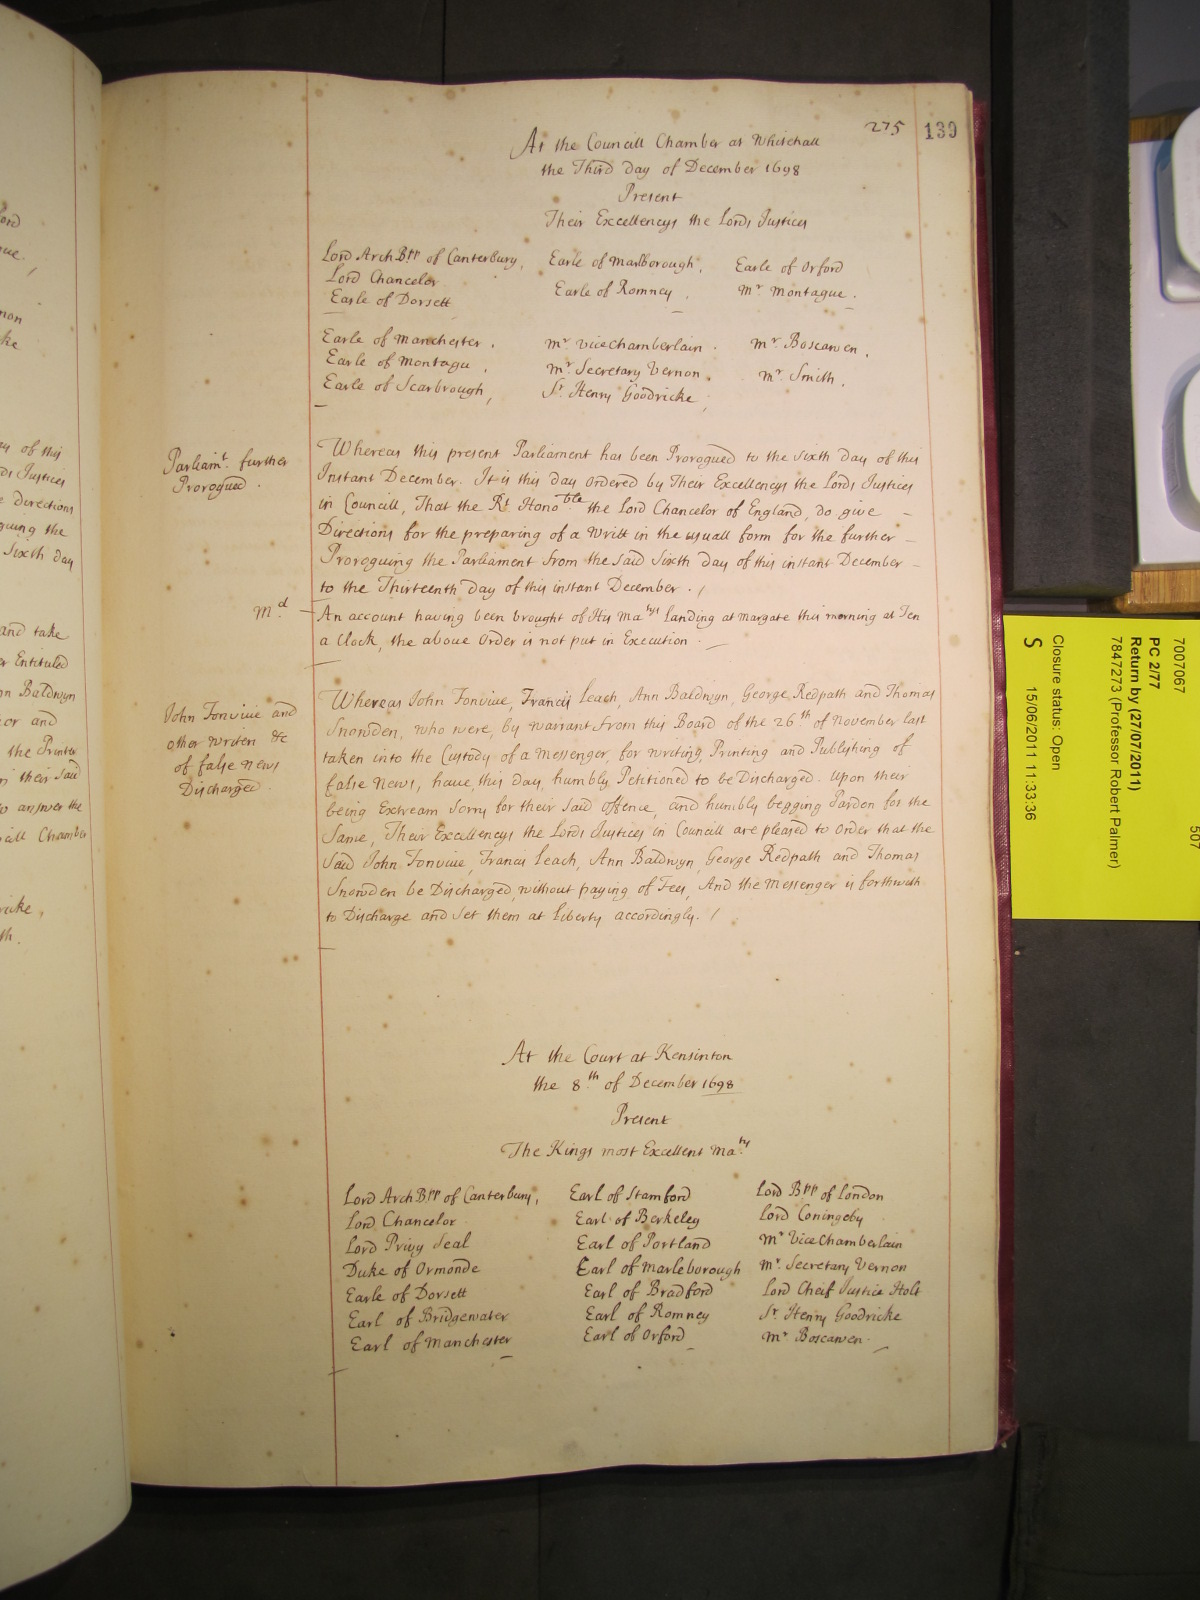 275 139
At the Councill Chamber at Whitehall
the Third day of December 1698
Present
Their Excellencys the Lords Justices
Lord ArchBpp of Canterbury, Earle of Marlborough, Earle of Orford
Lord Chancelor Earle of Romney, Mr Montague.
Earle of Dorsett
Earle of Manchester. Mr ViceChamberlain. Mr Boscawen,
Earle of Montagu, Mr Secretary Vernon. Mr Smith,
Earle of Scarbrough, Sr Henry Goodricke,
Parliamt. further
Prorogued.
Whereas this present Parliament has been Prorogued to the Sixth day of this
Instant December. It is this day Ordered by Their Excellencys the Lords Justices
in Councill, That the Rt Honoble the Lord Chancelor of England, do give –
Directions for the preparing of a Writt in the usuall form for the further –
Proroguing the Parliament from the said Sixth day of this instant December –
to the Thirteenth day of this instant December. /
Md
An account having been brought of His Matys landing at Margate this morning at Ten
a Clock, the above Order is not put in Execution
John Fonviue and
other writers &c
of false News
Discharged.
Whereas John Fonviue, Francis Leach, Ann Baldwyn, George Redpath and Thomas
Snowden, who were, by warrant from this Board of the 26th of November last
taken into the Custody of a Messenger, for writing, Printing and Publishing of
false News, have, this Day, humbly Petitioned to be Discharged. Upon their
being Extream Sorry for their said offence, and humbly begging Pardon for the
Same, Their Excellencys the Lords Justices in Councill are pleased to Order that the
said John Fonviue, Francis Leach, Ann Baldwyn, George Redpath and Thomas
Snowden be Discharged, without paying of Fees, And the Messenger is forthwith
to Discharge and Set them at Liberty accordingly. /
At the Court at Kensinton
the 8th of December 1698
Present
The Kings most Excellent Maty
Lord ArchBpp of Canterbury, Earl of Stamford Lord Bpp of London
Lord Chancelor Earl of Berkeley Lord Coningsby
Lord Privy Seal Earl of Portland Mr ViceChamberlain
Duke of Ormonde Earl of Marleborough Mr. Secretary Vernon
Earle of Dorsett Earl of Bradford Lord Cheif Justice Holt
Earl of Bridgewater Earl of Romney Sr. Henry Goodricke
Earl of Manchester Earl of Orford Mr Boscawen.
ay of this
ds Justices
e Directions
guing the
Sixth day
and take
er Entituled
nn Baldwyn
the Printer
their said
to answer the
cill Chamber
ricke,
th.
7007067
507
PC 2/77
Return by (27/07/2011)
7847273 (Professor Robert Palmer)
Closure status: Open
S 15/06/2011 11:33:36